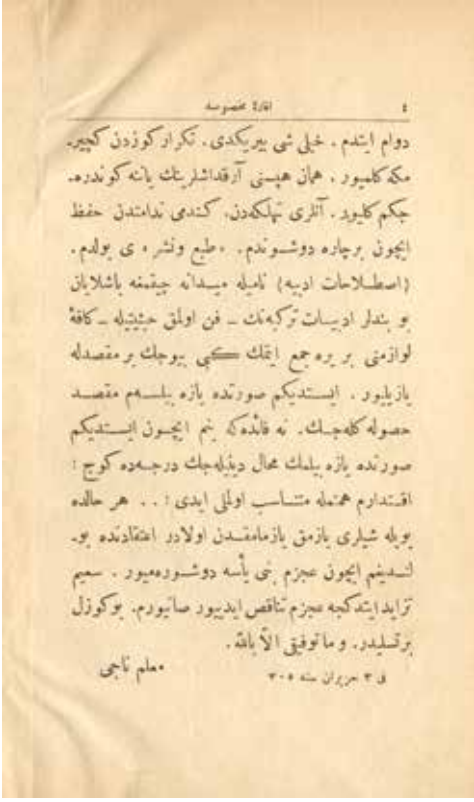 ٤ افادۀ مخصوصه
دوام ايتدم . خيلی شی بيريكدی . تكرار كوزدن كچير‌ـ
مكه كلميور . همان هپسنی آرقداشلرينك ياننه كوندره‌ـ
جكم كليور . آنلری تهلكه‌دن، كندمی ندامتدن حفظ
ايچون برچاره دوشوندم . «طبع ونشر» ی بولدم .
(اصطلاحات ادبيه) ناميله ميدانه چيقمغه باشلايان
بو بندلر ادبيات تركيه‌نك ــ فن اولمق حيثيتيله ــ كافۀ
لوازمنی بر يره جمع ايتمك كبی بيوجك بر مقصدله
يازيليور . ايستديكم صورتده يازه بيلسه‌م مقصد
حصوله كله‌جك . نه فائده‌كه بنم ايچون ايستديكم
صورتده يازه بيلمك محال دينيله‌جك درجه‌ده كوج :
اقتدارم همتمله متناسب اولملی ايدی ! . . هر حالده
بويله شيلری يازمق يازمامقدن اولادر اعتقادنده بو‌ـ
لنديغم ايچون عجزم بنی يأسه دوشورميور . سعيم
تزايد ايتدكجه عجزم تناقص ايدييور صانيورم. بوكوزل
برتسليدر . وما توفيقی الا بالله .
فی ٣ حزيران سنه ٣٠٥ معلم ناجی